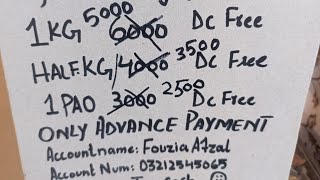 1KG 5000 6000 Dc Free
HALF.KG/4000 3500 Dc Free
1 PAO 3000 2500 Dc Free
ONLY ADVANCE PAYMENT
Account name: Fouzia Afzal
Account Num: 03212545065